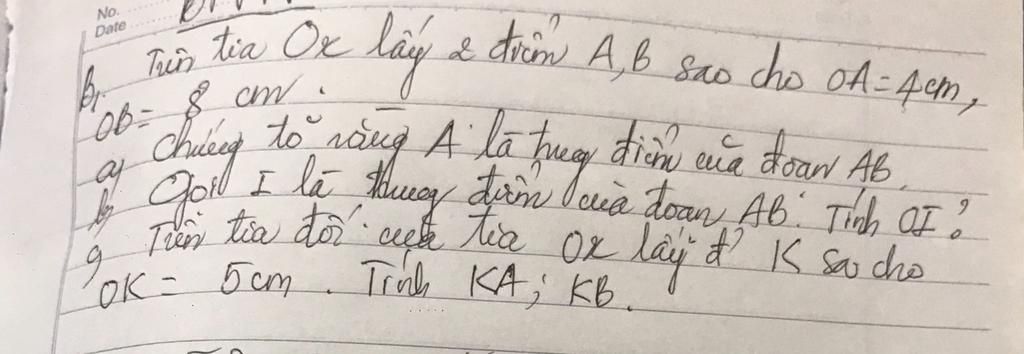 No.
Date
B1 Trên tia Ox lấy 2 điểm A,B sao cho OA=4cm,
OB= 8 cm.
a) Chứng tỏ rằng A là trung điểm của đoan AB.
b) Goi I là trung điểm của đoan AB. Tính OI?
c) Trên tia đối của tia Ox lấy đ' K sao cho
OK = 5cm. Tính KA; KB.